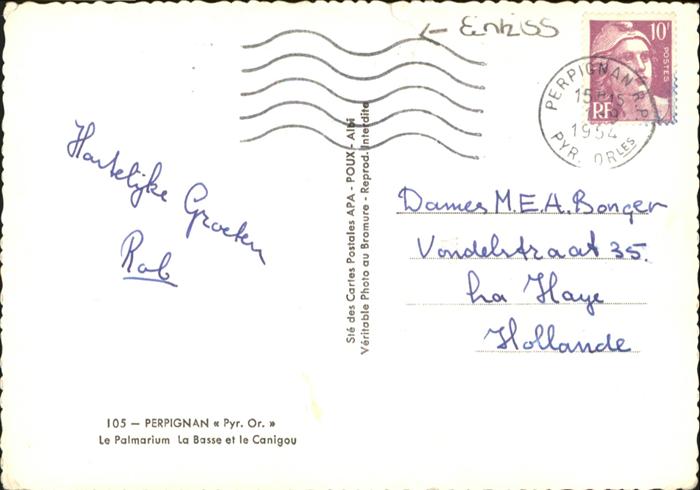 ← Einkiss
10F
POSTES
RF
PERPIGNAN R.P.
15H15
1954
PYR. ORLES
Hartelijke Groeten
Rob
Sté des Cartes Postales APA - POUX - Albi
Véritable Photo au Bromure - Reprod. Interdite
Dames M.E.A. Bonger
Vondelstraat 35.
La Haye
Hollande
105 — PERPIGNAN « Pyr. Or. »
Le Palmarium La Basse et le Canigou